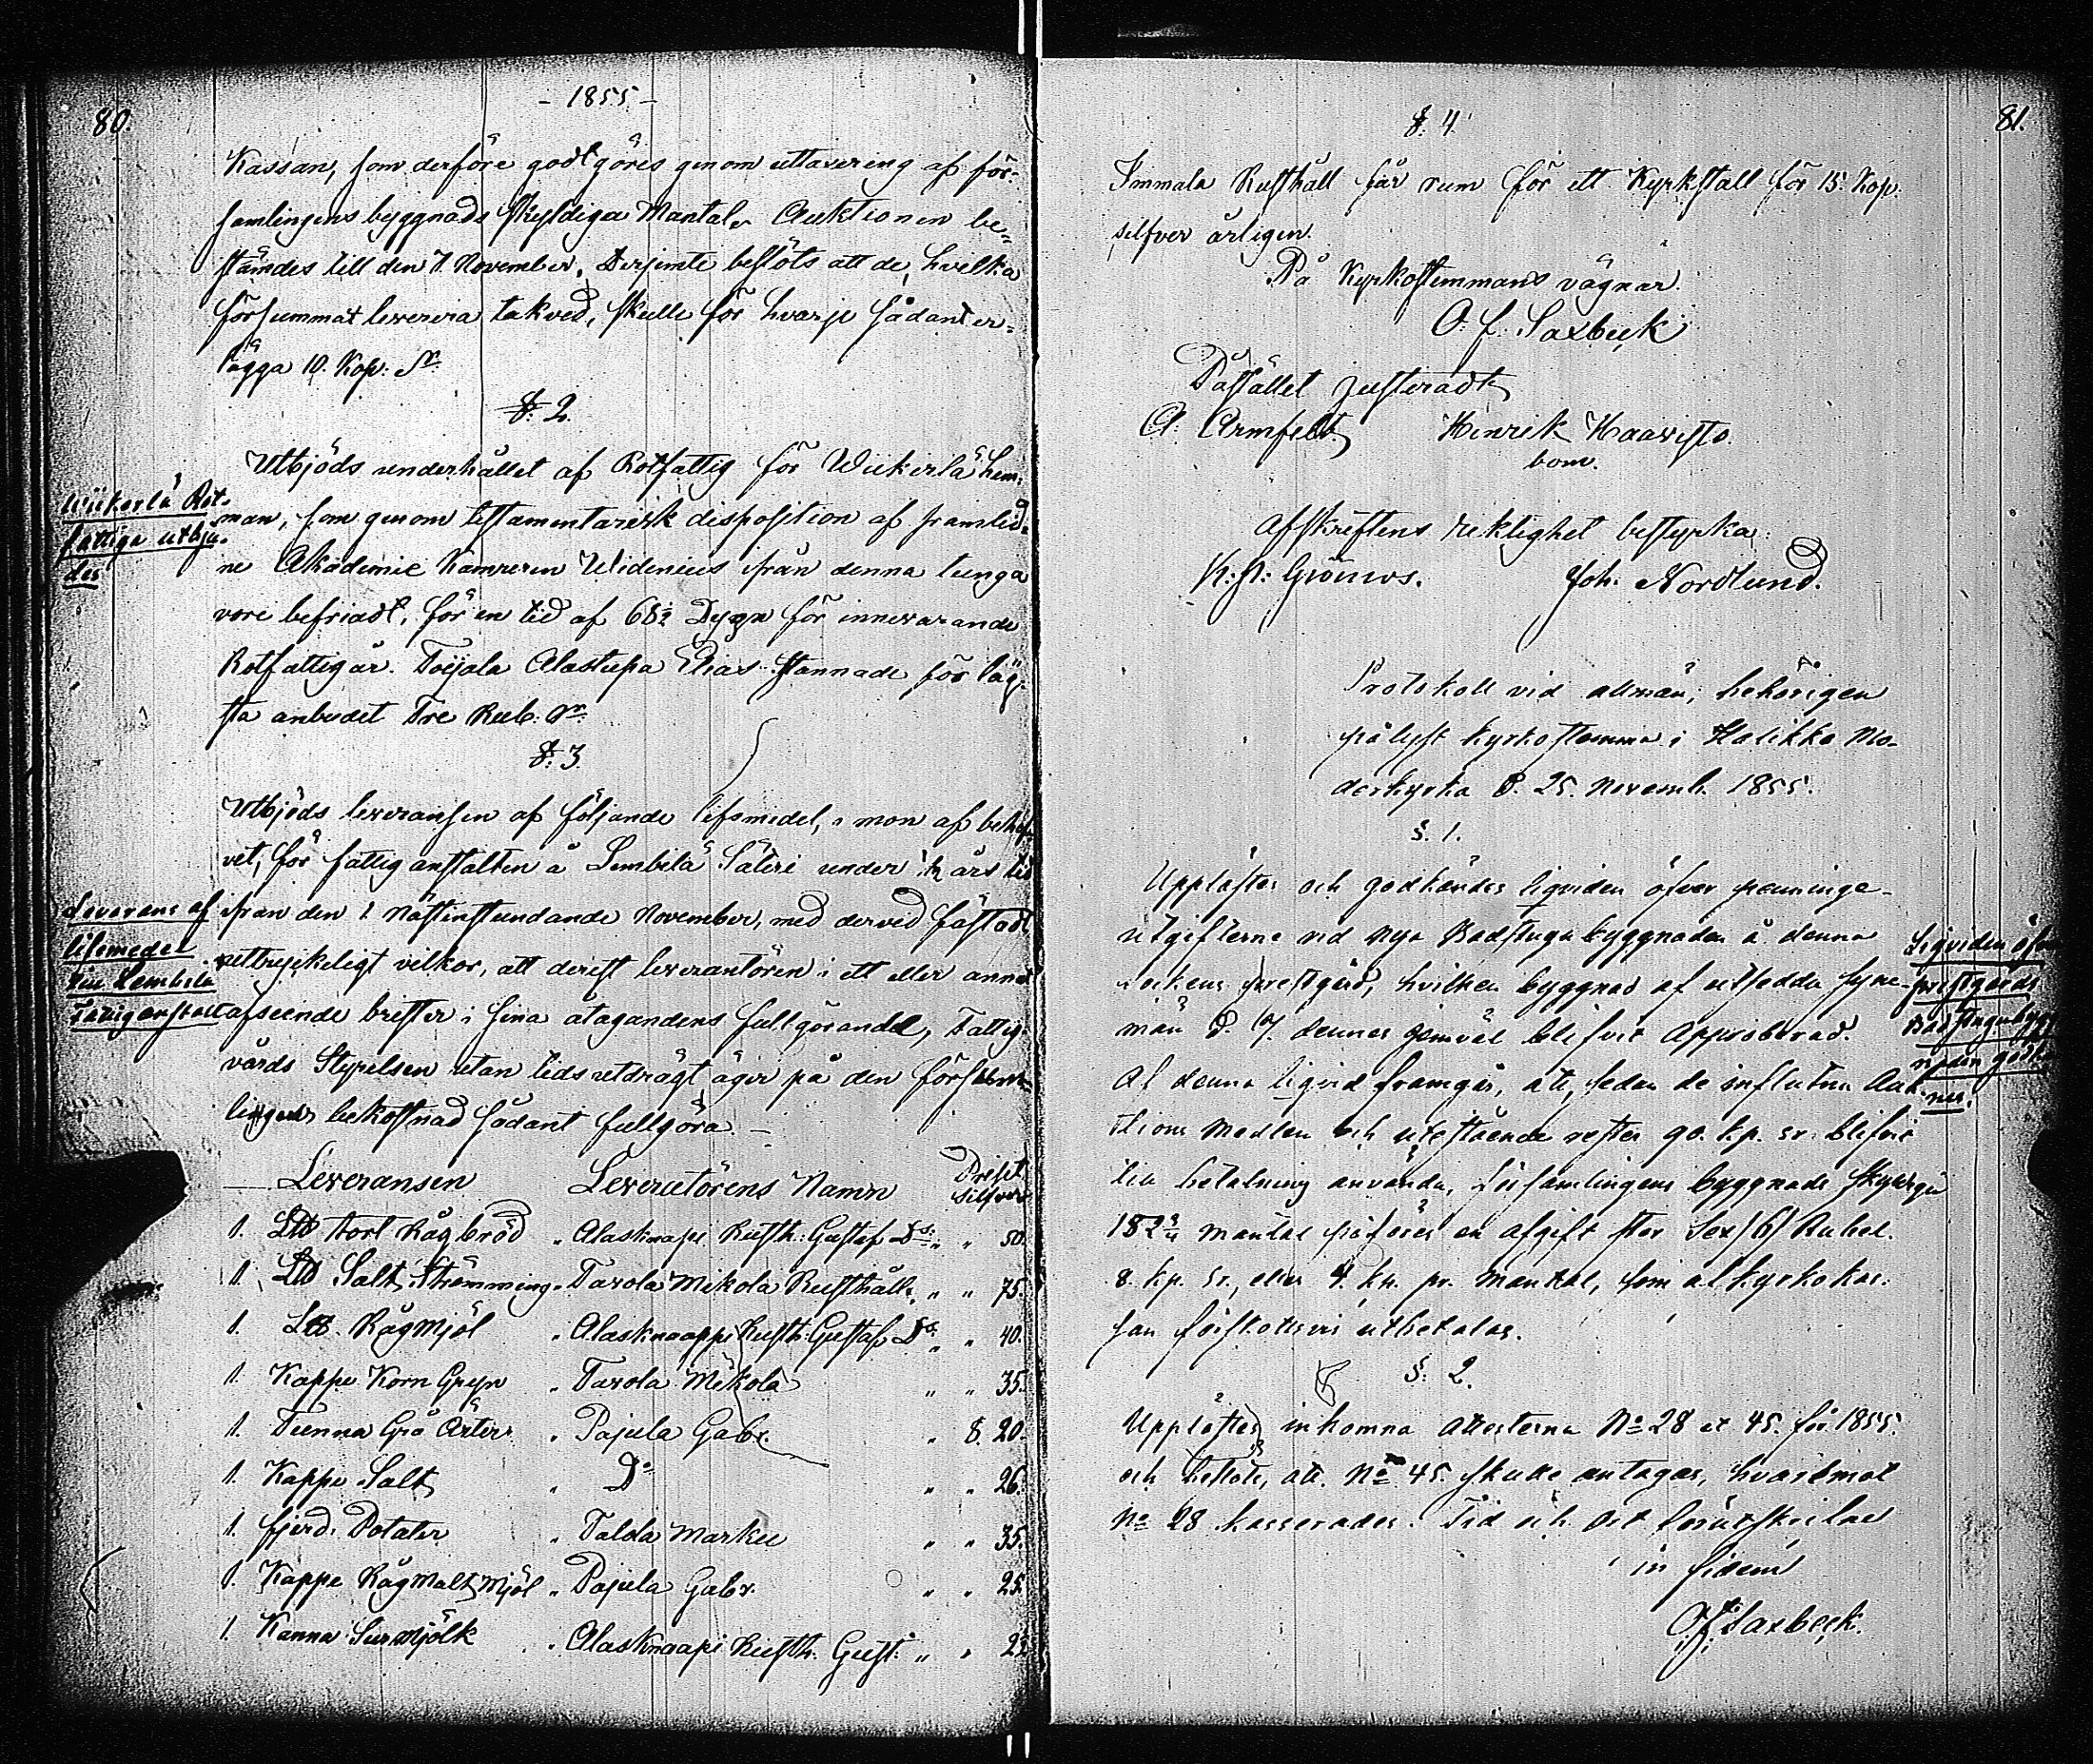 80.
- 1855 -
Kassan, som derföre godtgöres genom uttaxering af för-
samlingens byggnads skyldiga Mantal. Auktionen be-
stämdes till den 7. November. Derjemte beslöts att de, hvilka
försummat leverera takved, skulle för hvarje sådant er-
lägga 10. Kop: Sr.
§. 2.
Wiikerlä Rot-
fattiga utbju-
des
Utbjöds underhållet af Rotfattig för Wiikerlä hem-
man, som genom testamentarisk disposition af framlid-
ne Akademie Kamreren Widenius ifrån denna tunga
vore befriadt, för en tid af 68½ Dygn för innevarande
Rotfattigår. Toijala Alastupa Elias stannade för läg-
sta anbudet Tre Rub: Sr.
§. 3.
Leverans af
lifsmedel
till Lembilä
Fattiganstalt
Utbjöds leveransen af följande lifsmedel, i mon af behof-
vet, för fattiganstalten å Lembilä Säteri under ½ års tid
ifrån den 1 nästinstundande November, med dervid fästadt
uttryckeligt vilkor, att derest leverantören i ett eller annat
afseende brister i sina åtagandens fullgörande, Fattig-
vårds Styrelsen utan tidsutdrägt äger på den försum-
liges bekostnad sådant fullgöra. -
Leveransen Leveratörens Namn Priset Silfver
1. LW Torrt Rågbröd " Alasknaapi Rusth: Gustaf Ds: " " 50.
1. LW Salt, Strömming " Tavola Mikola Rusthåll: " " 75.
1. LW. Råg Mjöl " Alasknaappi Rusth: Gustaf Ds: " " 40.
1. Kappe Korn Gryn " Tavola Mikola " " 35.
1. Tunna Grå Ärter " Pajula Gabr. " 8. 20.
1. Kappe Salt " Do " " 26.
1. fjerd. Potater " Talola Marku " " 35.
1. Kappe Rågmalts Mjöl " Pajula Gabr. " " 25.
1. Kanna Surmjölk " Alasknaapi Rusth. Gust: " " 2½
81.
§. 4.
Immala Rusthåll får rum för ett Kyrkstall för 15. Kop.
silfver årligen.
På Kyrkostemmans vägnar.
O. f. Saxbeck
Påstället justeradt
A. Armfelt. Henrik Haavisto.
bom.
Afskriftens riktighet bestyrka:
Joh. Nordlund.
Protokoll vid allmän, behörigen
pålyst kyrkostemma i Halikko Mo-
derkyrka d. 25. Novemb. 1855.
§. 1.
Liqviden öfver
prestgårds
Badstugubygg
naden godkän
nes.
Upplästes och godkändes liqviden öfver penninge-
utgifterne vid nya Badstugu byggnaden å denna
sockens prestgård, hvilken byggnad af utsedda syne-
män d. dennes jemväl blifvit Approberad.
Af denna liqvid framgår, att, sedan de influtna Auk-
tions Medlen och utestående rester 90. kp. sr. blifvit
till betalning använda, församlingens byggnads skyldiga
182¾ mantal påföres en afgift stor Sex /6/ Rubel.
8. kp. Sr, eller 4. kp. pr. Mantal, som af kyrkokas-
san förskottsvis utbetalas.
§. 2.
Upplästes inkomna attesterna No 28 et 45. för 1855.
och beslöts, att No 45. skulle antagas, hvaremot
No 28 kasserades. Tid och Ort förutskrifne
in fidem
O. f. Saxbeck.